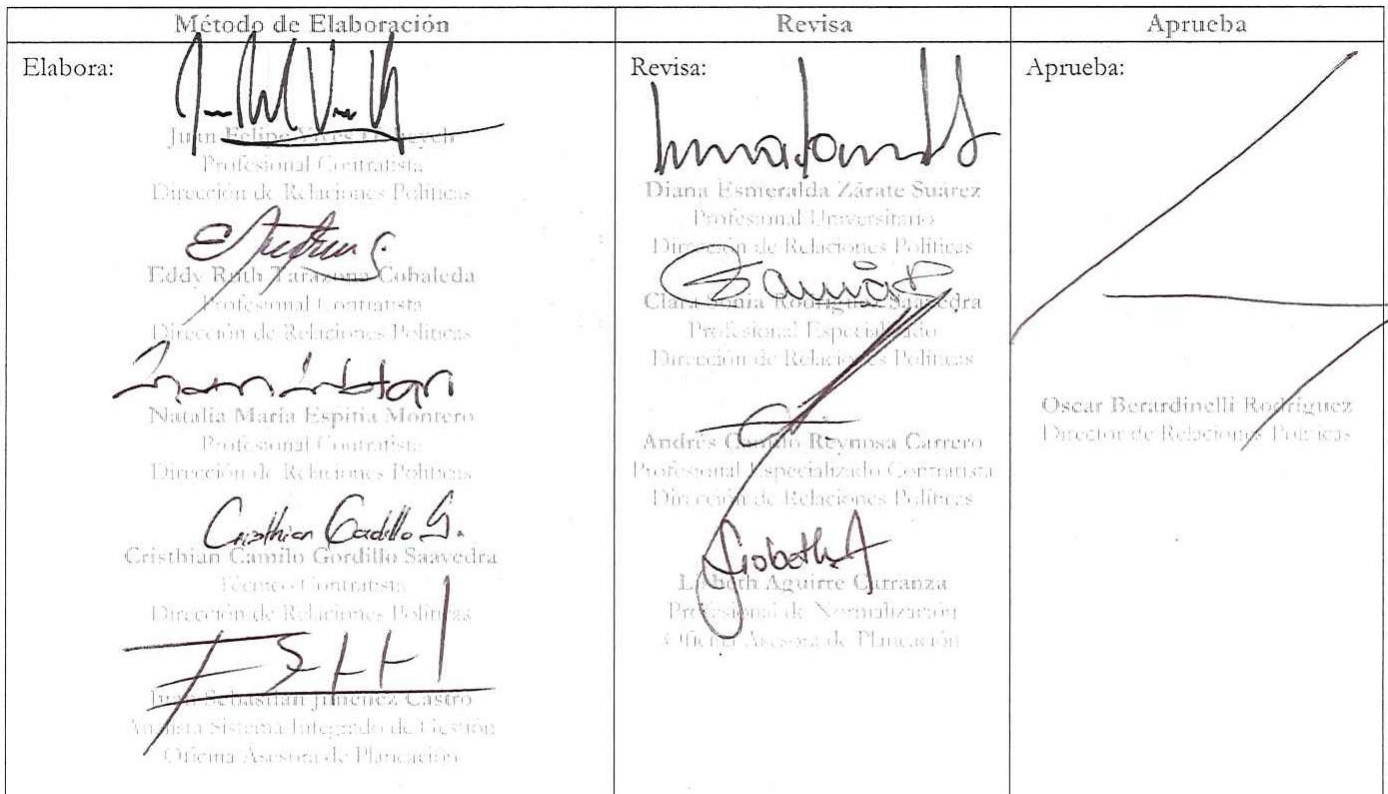 Método de Elaboración
Revisa
Aprueba
Elabora:
Juan Felipe
Profesional Contratista
Dirección de Relaciones Políticas
Eddy Ruth Tarazona Cobaleda
Profesional Contratista
Dirección de Relaciones Políticas
Natalia María Espitia Montero
Profesional Contratista
Dirección de Relaciones Políticas
Cristhian Gordillo S.
Cristhian Camilo Gordillo Saavedra
Técnico Contratista
Dirección de Relaciones Políticas
Juan Sebastián Jiménez Castro
Analista Sistema Integrado de Gestión
Oficina Asesora de Planeación
Revisa:
Diana Esmeralda Zárate Suárez
Profesional Universitario
Dirección de Relaciones Políticas
Clara Sonia Rodríguez Saavedra
Profesional Especializado
Dirección de Relaciones Políticas
Andrés Camilo Reynosa Carrero
Profesional Especializado Contratista
Dirección de Relaciones Políticas
Lizbeth Aguirre Carranza
Profesional de Normalización
Oficina Asesora de Planeación
Aprueba:
Oscar Berardinelli Rodríguez
Director de Relaciones Políticas